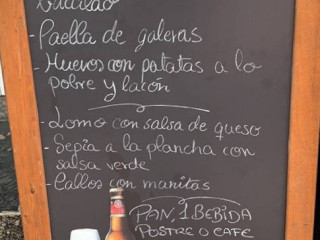 -Paella de galeras
-Huevos con patatas a lo
pobre y lacón
-Lomo con salsa de queso
-Sepia a la plancha con
salsa verde
-Callos con manitas
PAN, 1 BEBIDA
POSTRE O CAFE